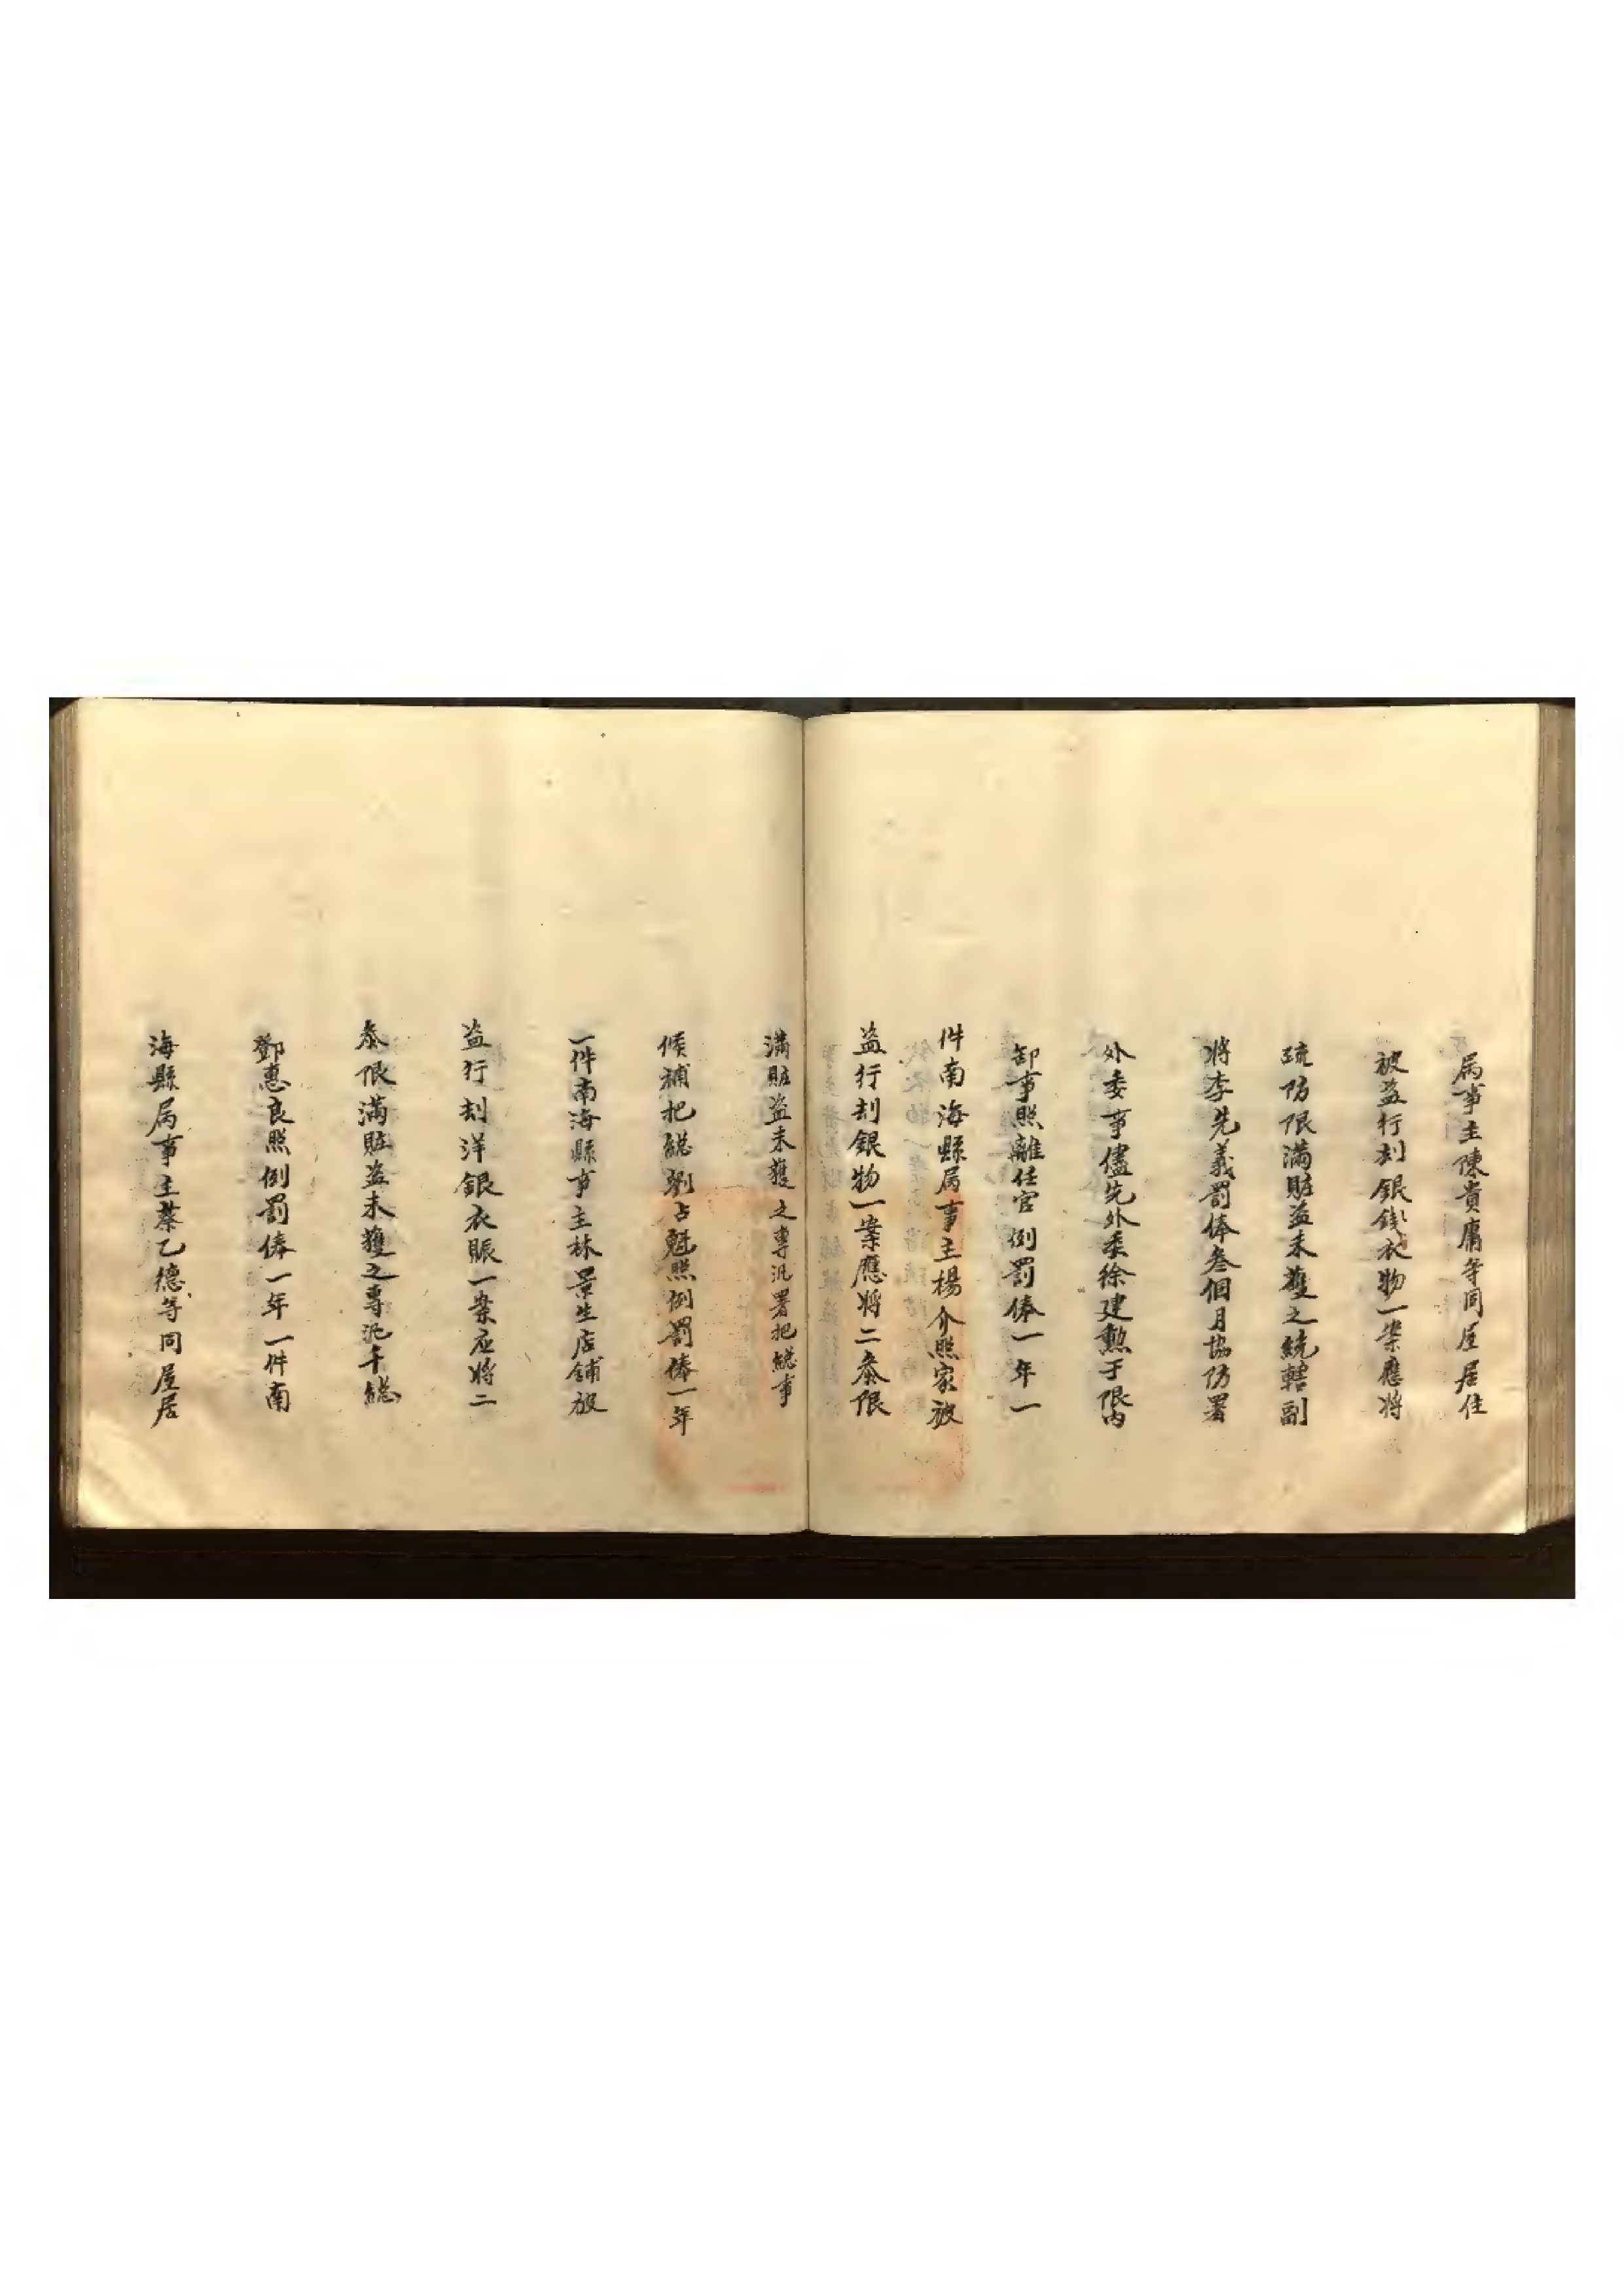 属事主陳貴庸等同屋居住
被盗行刦銀錢衣物一案應将
疏防限滿賍盗未獲之統轄副
将李先義罰俸叁個月協防署
外委事儘先外委徐建勲于限内
卸事照離任官例罰俸一年一
件南海縣属事主楊介熙家被
盗行刦銀物一案應将二叅限
滿賍盗未獲之專汛署把緫事
候補把緫劉占魁照例罰俸一年
一件南海縣事主林景生店舖被
盗行刦洋銀衣賬一案应将二
叅限滿賍盗未獲之專汛千緫
鄧惠良照例罰俸一年一件南
海縣属事主蔡乙德等同屋居